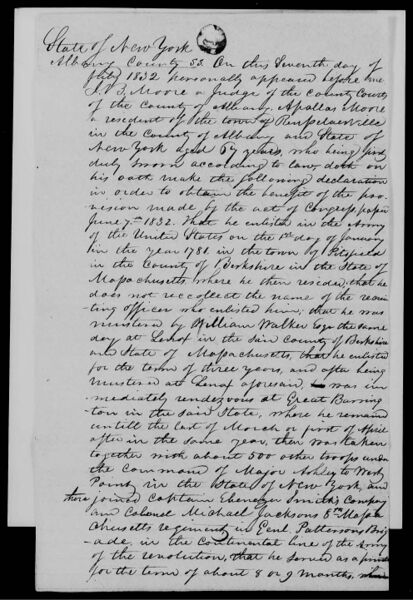 State of New York
Albany County SS. On this Seventh day of
July 1832 personally appeared before me
J. V. B. Moore a Judge of the County Courts
of the County of Albany Apallas Moore
a resident of the town of Renselaerville
in the County of Albany and State of
New York aged 67 years, who being first
duly sworn according to law, doth on
his oath make the following declaration
in order to obtain the benefit of the pro-
vision made by the act of Congress passed
June 7th 1832. That he enlisted in the Army
of the United States on the 1st day of January
in the year 1781. in the town of Pitsfield
in the County of Berkshire in the State of
Massachusetts where he then resided, that he
does not reccollect the name of the recrui-
ting officer who enlisted him; that he was
mustered by William Walker Esqr the same
day at Lenox in the said County of Berkshire
and State of Massachusetts, that he enlisted
for the term of three years, and after being
mustered at Lenox aforesaid, was im
mediately rendezvous at Great Barring
ton in the said State, where he remained
untill the last of March or first of April
after in the same year, then was taken
together with about 500 other troops under
the Command of Major Ashley to West
Point in the State of New York, and
there joined Captain Ebenezer Smith's Company
and Colonel Michael Jacksons 8th Massa
chusetts regiment, in Genl. Pattersons Brig
ade, in the Continental line of the Army
of the revolution, that he served as a private
for the term of about 8 or 9 months,